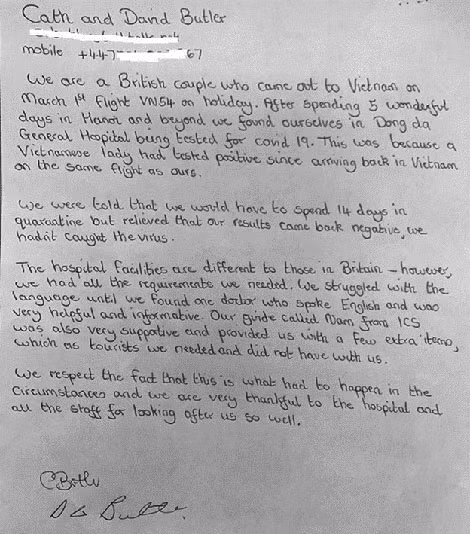 Cath and David Butler
mobile +447 67
We are a British couple who came out to Vietnam on
March 1st flight VN54 on holiday. After spending 5 wonderful
days in Hanoi and beyond we found ourselves in Dong da
General Hospital being tested for covid 19. This was because a
Vietnamese lady had tested positive since arriving back in Vietnam
on the same flight as ours.
We were told that we would have to spend 14 days in
quarantine but relieved that our results came back negative, we
hadn't caught the virus.
The hospital facilities are different to those in Britain - however,
we had all the requirements we needed. We struggled with the
language until we found one doctor who spoke English and was
very helpful and informative. Our guide called Nam, from ICS
was also very supportive and provided us with a few extra items,
which as tourists we needed and did not have with us.
We respect the fact that this is what had to happen in the
circumstances and we are very thankful to the hospital and
all the staff for looking after us so well.
CButler
D Butler.